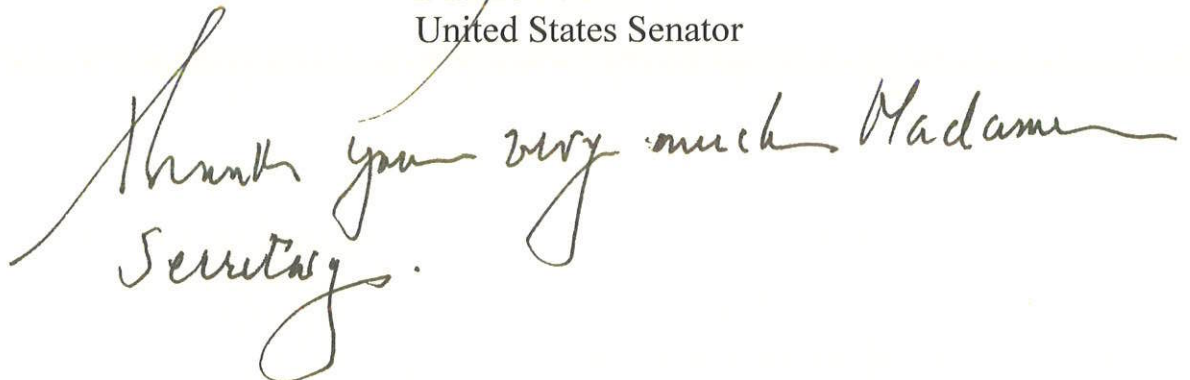 United States Senator
Thank you very much Madame
Secretary.